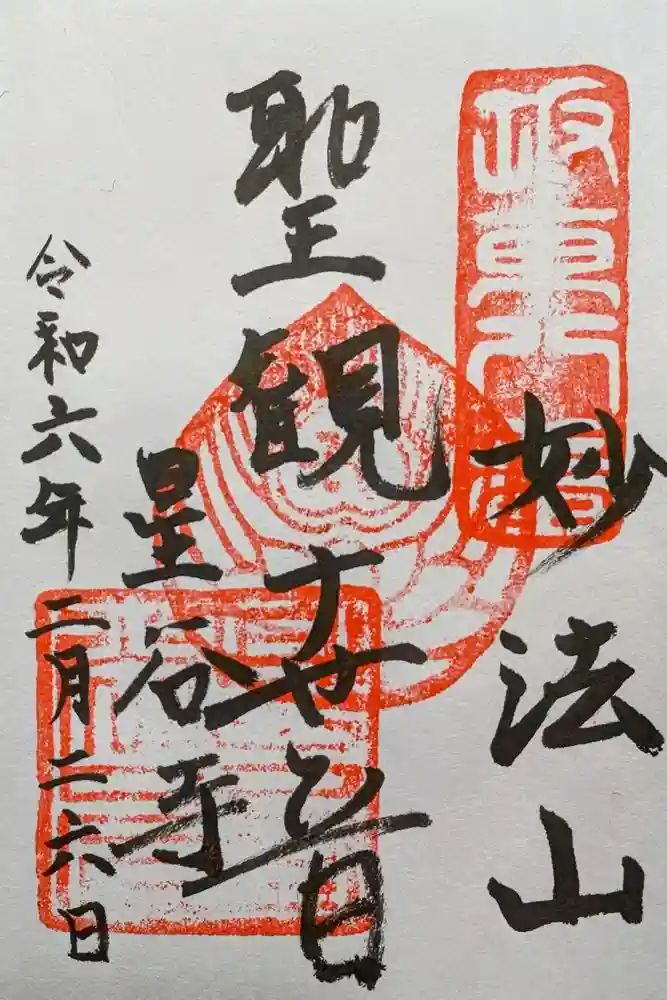 坂東
妙法山
聖観世音
星谷寺
令和六年二月二六日